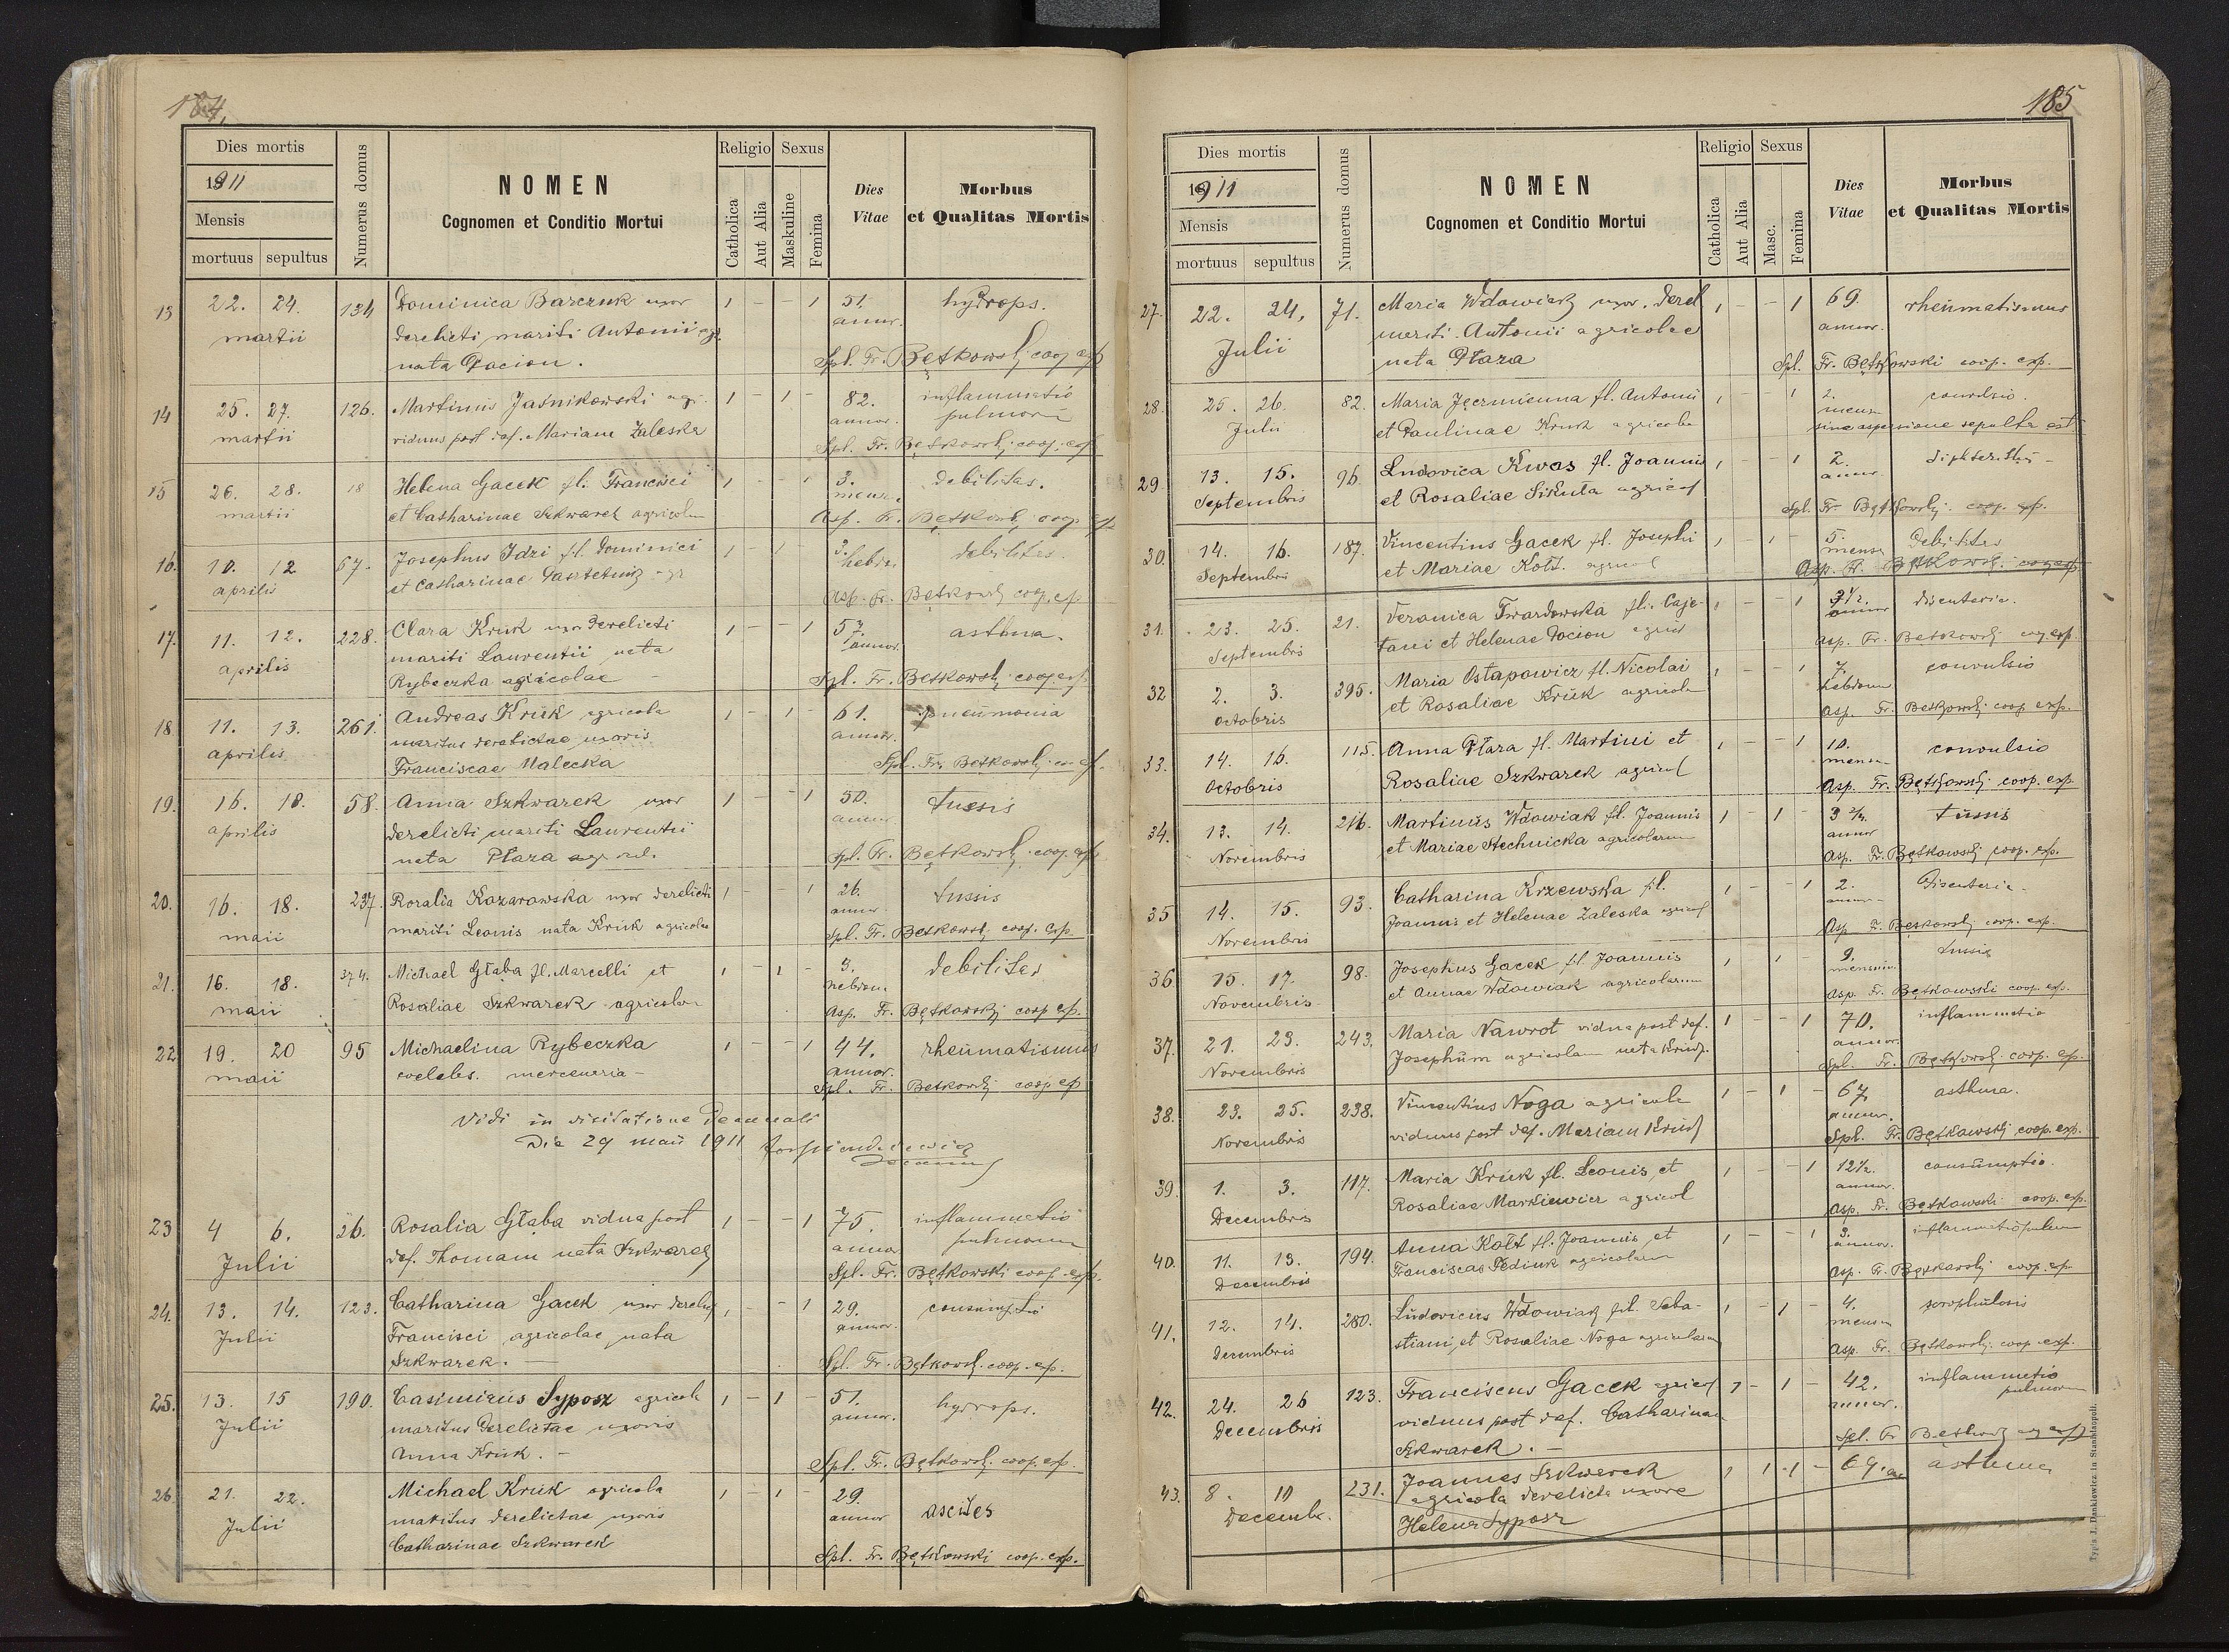 184.
Dies mortis
1911
Mensis
mortuus sepultus
Numerus domus
NOMEN
Cognomen et Conditio Mortui
Religio
Catholica
Aut Alia
Sexus
Maskuline
Femina
Dies
Vitae
Morbus
et Qualitas Mortis
13 22. 24. martii 134 Dominica Barczuk uxor 1 - - 1 51. annor. hydrops.
derelicti mariti Antonii agr.
nata Pacion. Spl. Fr. Bętkowski coop exp
14 25. 27. martii 126. Martinus Jaśnikowski agr. 1 - 1 - 82. annor. inflammatio pulmon
viduus post def. Mariam Zaleska Spl. Fr. Bętkowski coop. exp
15 26. 28. martii 18 Helena Gacek fl. Francisci 1 - - 1 3. mens. debilitas.
et Catharinae Szkwarek agricolar Asp. Fr. Bętkowski coop exp
16. 10. 12 aprilis 67. Josephus Idzi fl. Dominici 1 - 1 - 3. hebdo. debilitas.
et Catharinae agr Asp. Fr. Bętkowski coop. exp
17. 11. 12. aprilis 228. Clara Kruk uxor derelicti 1 - - 1 57. annor. asthma.
mariti Laurentii nata
Rybeczka agricolae Spl. Fr. Bętkowski coop. exp
18 11. 13. aprilis 261. Andreas Kruk agricola 1 - 1 - 61. annor. pneumonia
maritus derelictae uxoris
Franciscae Malecka Spl. Fr. Bętkowski exp.
19. 16. 18. aprilis 58. Anna Szkwarek uxor 1 - - 1 50. annor tussis
derelicti mariti Laurentii
nata Płaza agricol. Spl. Fr. Bętkowski coop. exp
20. 16. 18. maii 237. Rozalia Kazarawska uxor derelicti 1 - - 1 26. annor. tussis
mariti Leonis nata Kruk agricolae Spl. Fr. Bętkowski coop. exp.
21. 16. 18. maii 374. Michael Głąba fl. Marcelli et 1 - 1 - 3. hebdom. debilitas
Rosaliae Szkwarek agricolar Asp. Fr. Bętkowski coop exp.
22 19. 20 maii 95 Michaelina Rybeczka 1 - - 1 44. annor. rheumatismus
coelebs. mercenaria - Spl. Fr. Bętkowski coop exp
Vidi in visitatione Decanali
Die 29 maii 1911
Decanus
23 4 6. Julii 26. Rosalia Głąba vidua post 1 - - 1 75. annor inflammatio pulmonum
def. Thomam nata Szkwarek Spl. Fr. Bętkowski coop. exp.
24. 13. 14. Julii 123. Catharina Gacek uxor derelic 1 - - 1 29. annor. consumptio
Francisci agricolae nata
Szkwarek. - Spl. Fr. Bętkowski coop. exp.
25. 13. 15 Julii 190. Casimirus Syposz agricola 1 - 1 - 51. annor. hydrops.
maritus derelictae uxoris
Anna Kruk. - Spl. Fr. Bętkowski coop. exp.
26. 21. 22. Julii Michael Kruk agricola 1 - 1 - 29. annor ascites
maritus derelictae uxoris
Catharinae Szkwarek Spl. Fr. Bętkowski coop. exp.
185
Dies mortis
1911
Mensis
mortuus sepultus
Numerus domus
NOMEN
Cognomen et Conditio Mortui
Religio
Catholica
Aut Alia
Sexus
Masc.
Femina
Dies
Vitae
Morbus
et Qualitas Mortis
27. 22. 24. Julii 71. Maria Wdowiak uxor. derel 1 - - 1 69. annor. rheumatismus
mariti Antonii agricolae
nata Płaza Spl. Fr. Bętkowski coop. exp.
28. 25. 26. Julii 82. Maria Jęczmienna fl. Antonii 1 - - 1 2. mens convulsio.
et Paulinae Kruk agricolae sine aspersione sepulta est.
29. 13. 15. Septembris 96. Ludovica Kwas fl. Joannis 1 - - 1 2. annor. diphteritis -
et Rosaliae Sikuta agricol Spl. Fr. Bętkowski coop. exp.
30. 14. 16. Septembris 187. Vincentius Gacek fl. Josephi 1 - 1 - 5. mens debilitas
et Mariae Kott. agricol Asp. Fr. Bętkowski coop exp
31. 23. 25. Septembris 21. Veronica Twardowska fl. Caje- 1 - - 1 3 1/2. annor disenteria.
tani et Helenae Pocion agricol Asp. Fr. Bętkowski coop. exp.
32 2. 3. octobris 395. Maria Ostapowicz fl. Nicolai 1 - - 1 7. hebdom convulsio
et Rosaliae Kruk agricolar Asp. Fr. Bętkowski coop exp.
33. 14. 16. octobris 115. Anna Płaza fl. Martini et 1 - - 1 10. mens. convulsio
Rosaliae Szkwarek agricol Asp. Fr. Bętkowski coop. exp
34. 13. 14. Novembris 216. Martinus Wdowiak fl. Joannis 1 - 1 - 3 2/4. annor tussis
et Mariae Stechnicka agricolarum Asp. Fr. Bętkowski coop. exp.
35 14. 15. Novembris 93. Catharina Krzewska fl. 1 - - 1 2. annor - disenteria -
Joannis et Helenae Zaleska agricol Asp. Fr. Bętkowski coop. exp.
36. 15. 17. Novembris 98. Josephus Gacek fl Joannis 1 - 1 - 9. mensium tussis
et Annae Wdowiak agricolarum Asp. Fr. Bętkowski coop. exp.
37. 21. 23. Novembris 243. Maria Nawrot vidua post def. 1 - - 1 70. annor. inflammatio
Josephum agricolam nata Kruk. Spl. Fr. Bętkowski coop. exp.
38. 23. 25. Novembris 238. Vincentius Noga agricola 1 - 1 - 67. annor. asthma.
viduus post def. Mariam Kruk Spl. Fr. Bętkowski coop. exp.
39. 1. 3. Decembris 117. Maria Kruk fl. Leonis et 1 - - 1 12 1/2. annor. consumptio.
Rosaliae Markiewicz agricol Asp. Fr. Bętkowski coop. exp.
40. 11. 13. Decembris 194. Anna Kott fl. Joannis et 1 - - 1 3. annor. inflammatio pulmon
Franciscae Fediuk agricolarum Asp. Fr. Bętkowski coop. exp
41. 12. 14. Decembris 280. Ludovicus Wdowiak fil. Seba- 1 - 1 - 4. mensum scrophulosis
stiani et Rosaliae Noga agricolarum Asp. Fr. Bętkowski coop. exp.
42. 24. 26 Decembris 123. Franciscus Gacek agricol 1 - 1 - 42. annor. inflammatio pulmonum
viduus post def. Catharinam
Szkwarek. - Spl. Fr Bętkowski coop exp
43. 8. 10 Decembr. 231. Joannes Szkwarek 1 1 - 1 - 69. an asthma
agricola derelicta uxore
Helena Syposz
Typis J. Dankiewicz in Stanislaopoli.